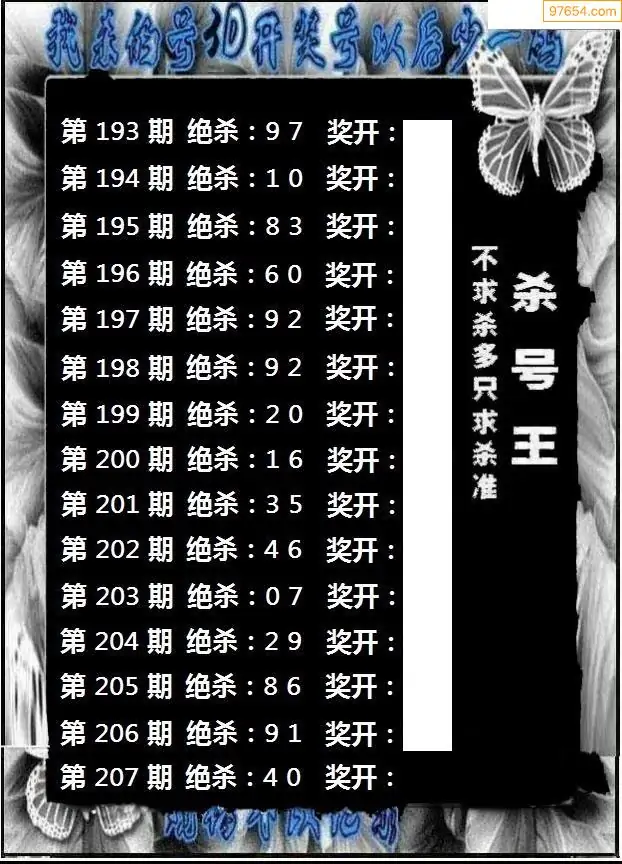 97654.com
我杀的号3D开奖号以后少一码
第193期 绝杀:97 奖开:
第194期 绝杀:10 奖开:
第195期 绝杀:83 奖开:
第196期 绝杀:60 奖开:
第197期 绝杀:92 奖开:
第198期 绝杀:92 奖开:
第199期 绝杀:20 奖开:
第200期 绝杀:16 奖开:
第201期 绝杀:35 奖开:
第202期 绝杀:46 奖开:
第203期 绝杀:07 奖开:
第204期 绝杀:29 奖开:
第205期 绝杀:86 奖开:
第206期 绝杀:91 奖开:
第207期 绝杀:40 奖开:
杀号王
不求杀多只求杀准